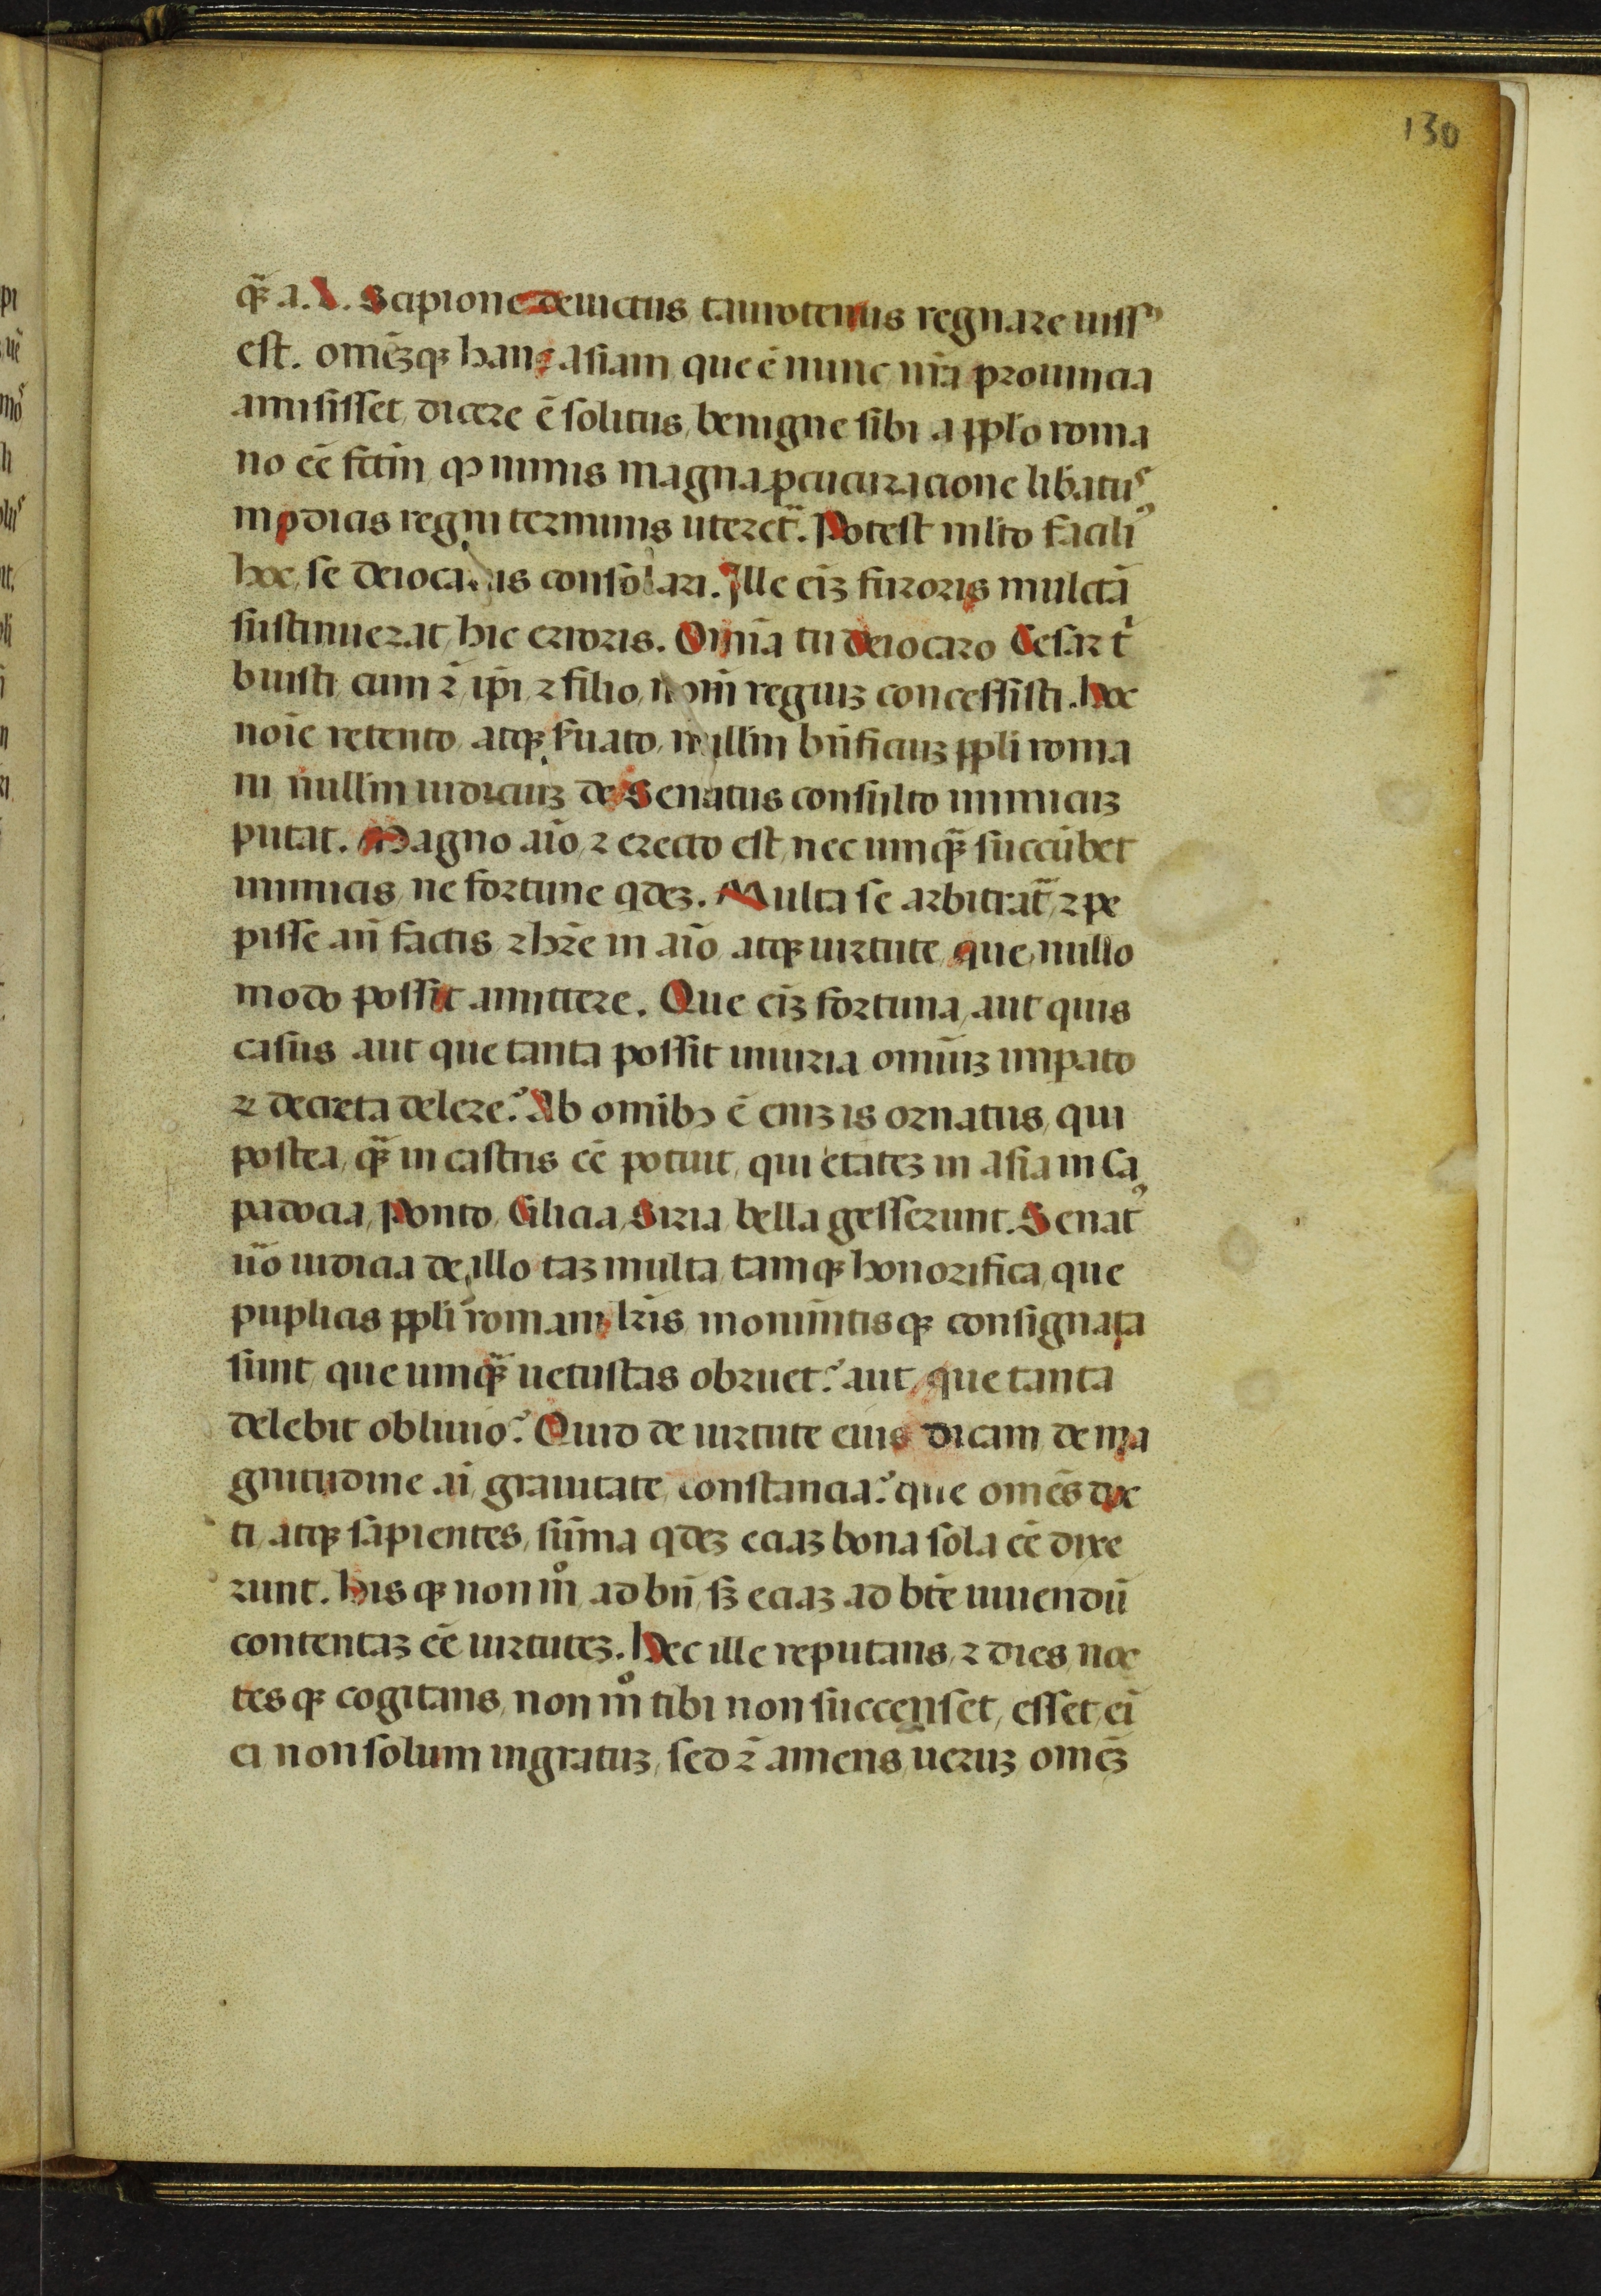 130
qꝫ̃ a. L. Scipione deuictus taurotenus regnare iuss᷒
est. omẽꝫqꝫ hanc asiam que ẽ nunc nr̃a prouincia
amisisset dicere ẽ solitus benigne sibi a pplo roma
no eẽ fctm̃ qꝫ nimis magna ꝓcuracione libatu᷒
modicis regni terminis uteret̃. Potest mlto facili᷒
hoc se deiotarus consolari. Ille eiꝫ furoris mulctã
sustinuerat hic erroris. Omĩa tu deiotaro Cesar tⁱ
buisti cum ⁊̃ ip̃i ⁊ filio nom̃ regiuꝫ concessisti. Hoc
noĩe retento atqꝫ s̃uato nullm̃ bñficiuꝫ ppli roma
ni nullm̃ iudiciuꝫ de Senatus consulto inimicuꝫ
putat. Magno aĩo ⁊ erecto est nec umqꝫ̃ succũbet
inimicis ne fortune qdeꝫ. Multa se arbitrat̃ ⁊ pe
pisse añ factis ⁊ hr̃e in aĩo atqꝫ uirtute que nullo
modo possit amittere. Que eiꝫ fortuna aut quis
casus aut que tanta possit iniuria omniuꝫ impato
⁊ decreta delere? Ab omibꝫ ẽ eniꝫ is ornatus qui
postea qꝫ̃ in castris eẽ potuit qui etateꝫ in asia in Ca
padocia Ponto Cilicia Siria bella gesserunt. Senat᷒
ũo iudicia de illo taꝫ multa tamqꝫ honorifica que
puplicis ppli romani lr̃is monimtisqꝫ consignata
sunt que umqꝫ̃ uetustas obruet? aut que tanta
delebit obliuio? Quid de uirtute eius dicam de ma
gnitudine aĩ grauitate constancia? que omẽs doc
ti atqꝫ sapientes sũma qdeꝫ eciaꝫ bona sola eẽ dixe
runt. Hisqꝫ non mͦ ad bñ sꝫ eciaꝫ ad bt̃e uiuendũ
contentaꝫ eẽ uirtuteꝫ. Hec ille reputans ⁊ dies noc
tesqꝫ cogitans non mͦ tibi non succenset esset eĩ
ei non solum ingratuꝫ sed ⁊̃ amens ueruꝫ omeꝫ̃